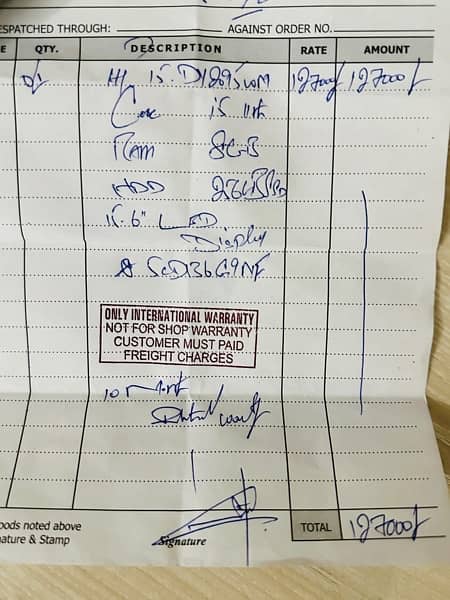 ESPATCHED THROUGH: AGAINST ORDER NO.
E QTY. DESCRIPTION RATE AMOUNT
01 HP 15. 127000/ 127000/
Core i5 11th
RAM 8GB
HDD 256GB
15.6" LED
Display
ONLY INTERNATIONAL WARRANTY
NOT FOR SHOP WARRANTY
CUSTOMER MUST PAID
FREIGHT CHARGES
10 Month
oods noted above
nature & Stamp
Signature
TOTAL 127000/